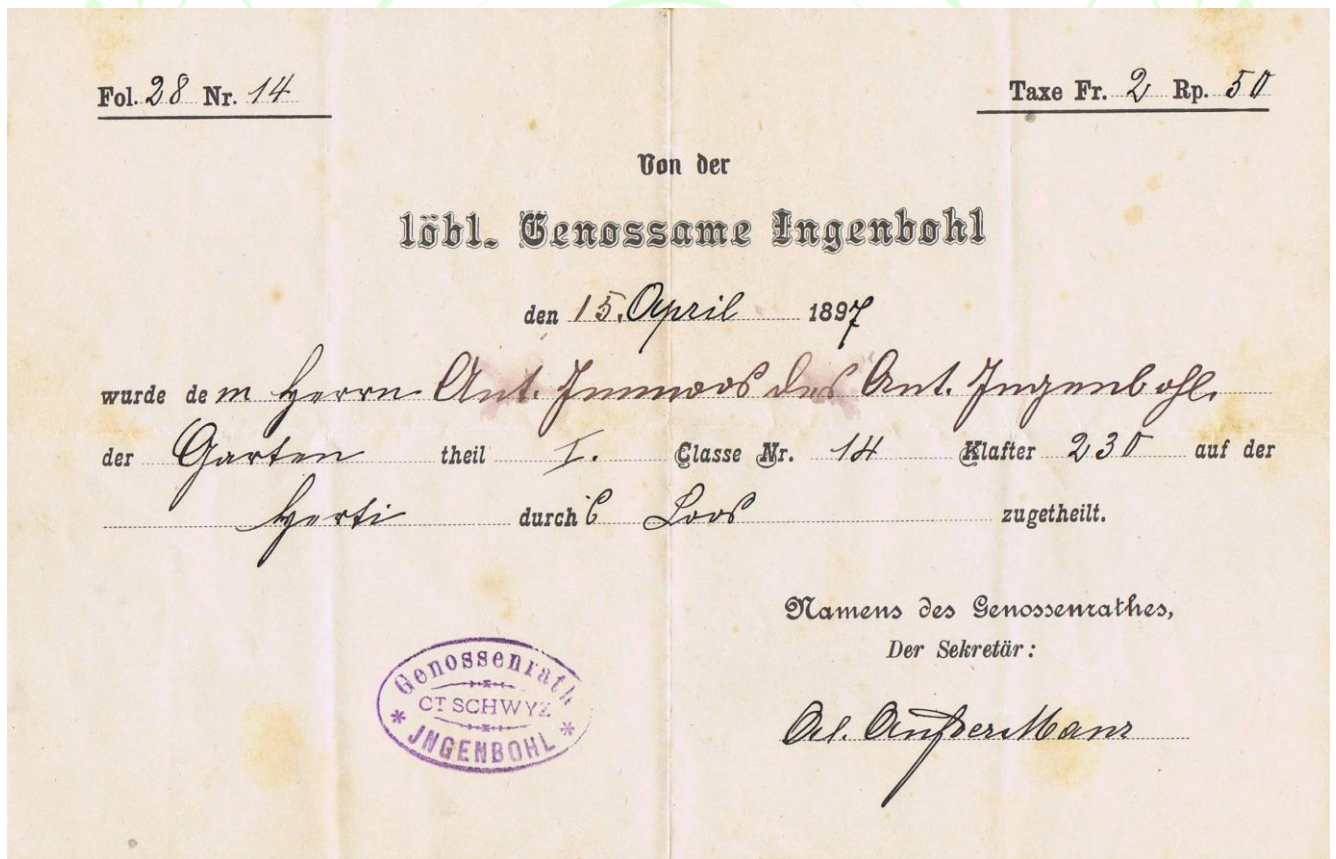 Fol. 28 Nr. 14
Taxe Fr. 2 Rp. 50
Von der
löbl. Genossame Ingenbohl
den 15. April 1897
wurde dem Herrn Ant. Immoos des Ant. Ingenbohl
der Garten theil I. Classe Nr. 14 Klafter 230 auf der
Herti durch's Loos zugetheilt.
Namens des Genossenrathes,
Der Sekretär:
Genossenrath
CT SCHWYZ
* JNGENBOHL *
Al. AufderMaur